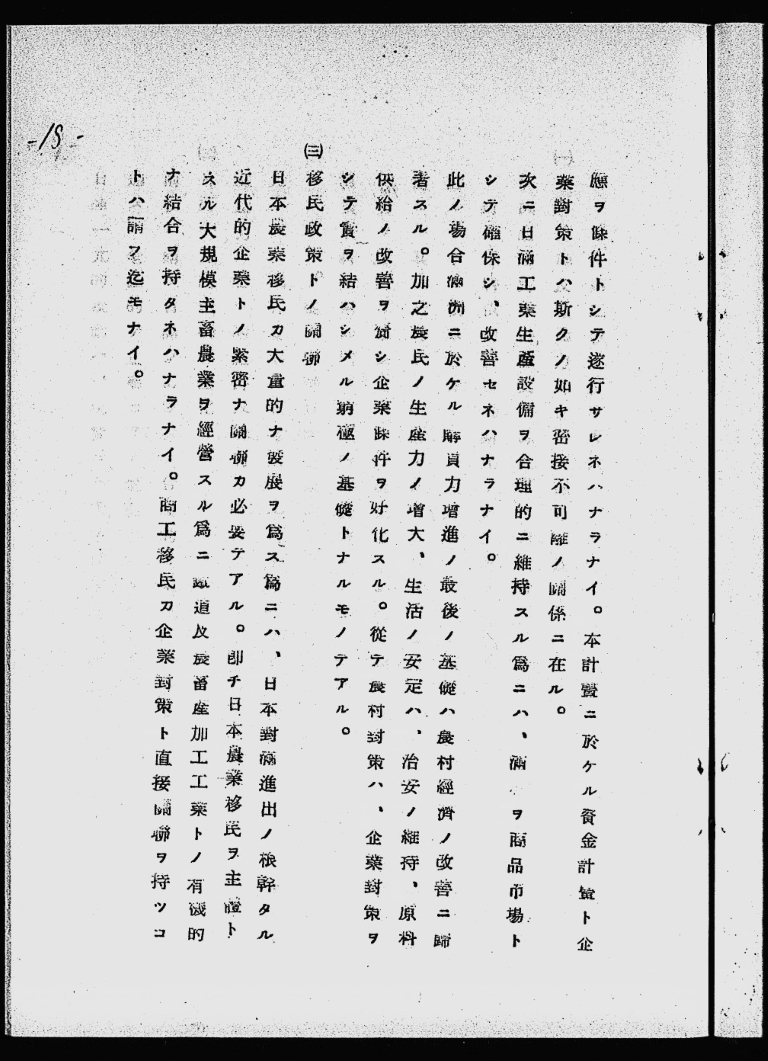 -18-
應ヲ條件トシテ遂行サレネハナラナイ。本計畫ニ於ケル資金計畫ト企
業對策トハ斯クノ如キ密接不可離ノ關係ニ在ル。
次ニ日滿工業生産設備ヲ合理的ニ維持スル爲ニハ、滿ヲ商品市場ト
シテ確保シ、改善セネハナラナイ。
此ノ場合滿洲ニ於ケル購買力增進ノ最後ノ基礎ハ農村經濟ノ改善ニ歸
着スル。加之農民ノ生産力ノ增大、生活ノ安定ハ、治安ノ維持、原料
供給ノ改善ヲ齎シ企業條件ヲ好化スル。從テ農村對策ハ、企業對策ヲ
シテ實ヲ結ハシメル窮極ノ基礎トナルモノテアル。
㈢移民政策トノ關聯
日本農業移民カ大量的ナ發展ヲ爲ス爲ニハ、日本對滿進出ノ根幹タル
近代的企業トノ緊密ナ關聯カ必要テアル。卽チ日本農業移民ヲ主體ト
スル大規模主畜農業ヲ經營スル爲ニ鐵道及農畜産加工工業トノ有機的
ナ結合ヲ持タネハナラナイ。商工移民カ企業對策ト直接關聯ヲ持ツコ
トハ謂フ迄モナイ。